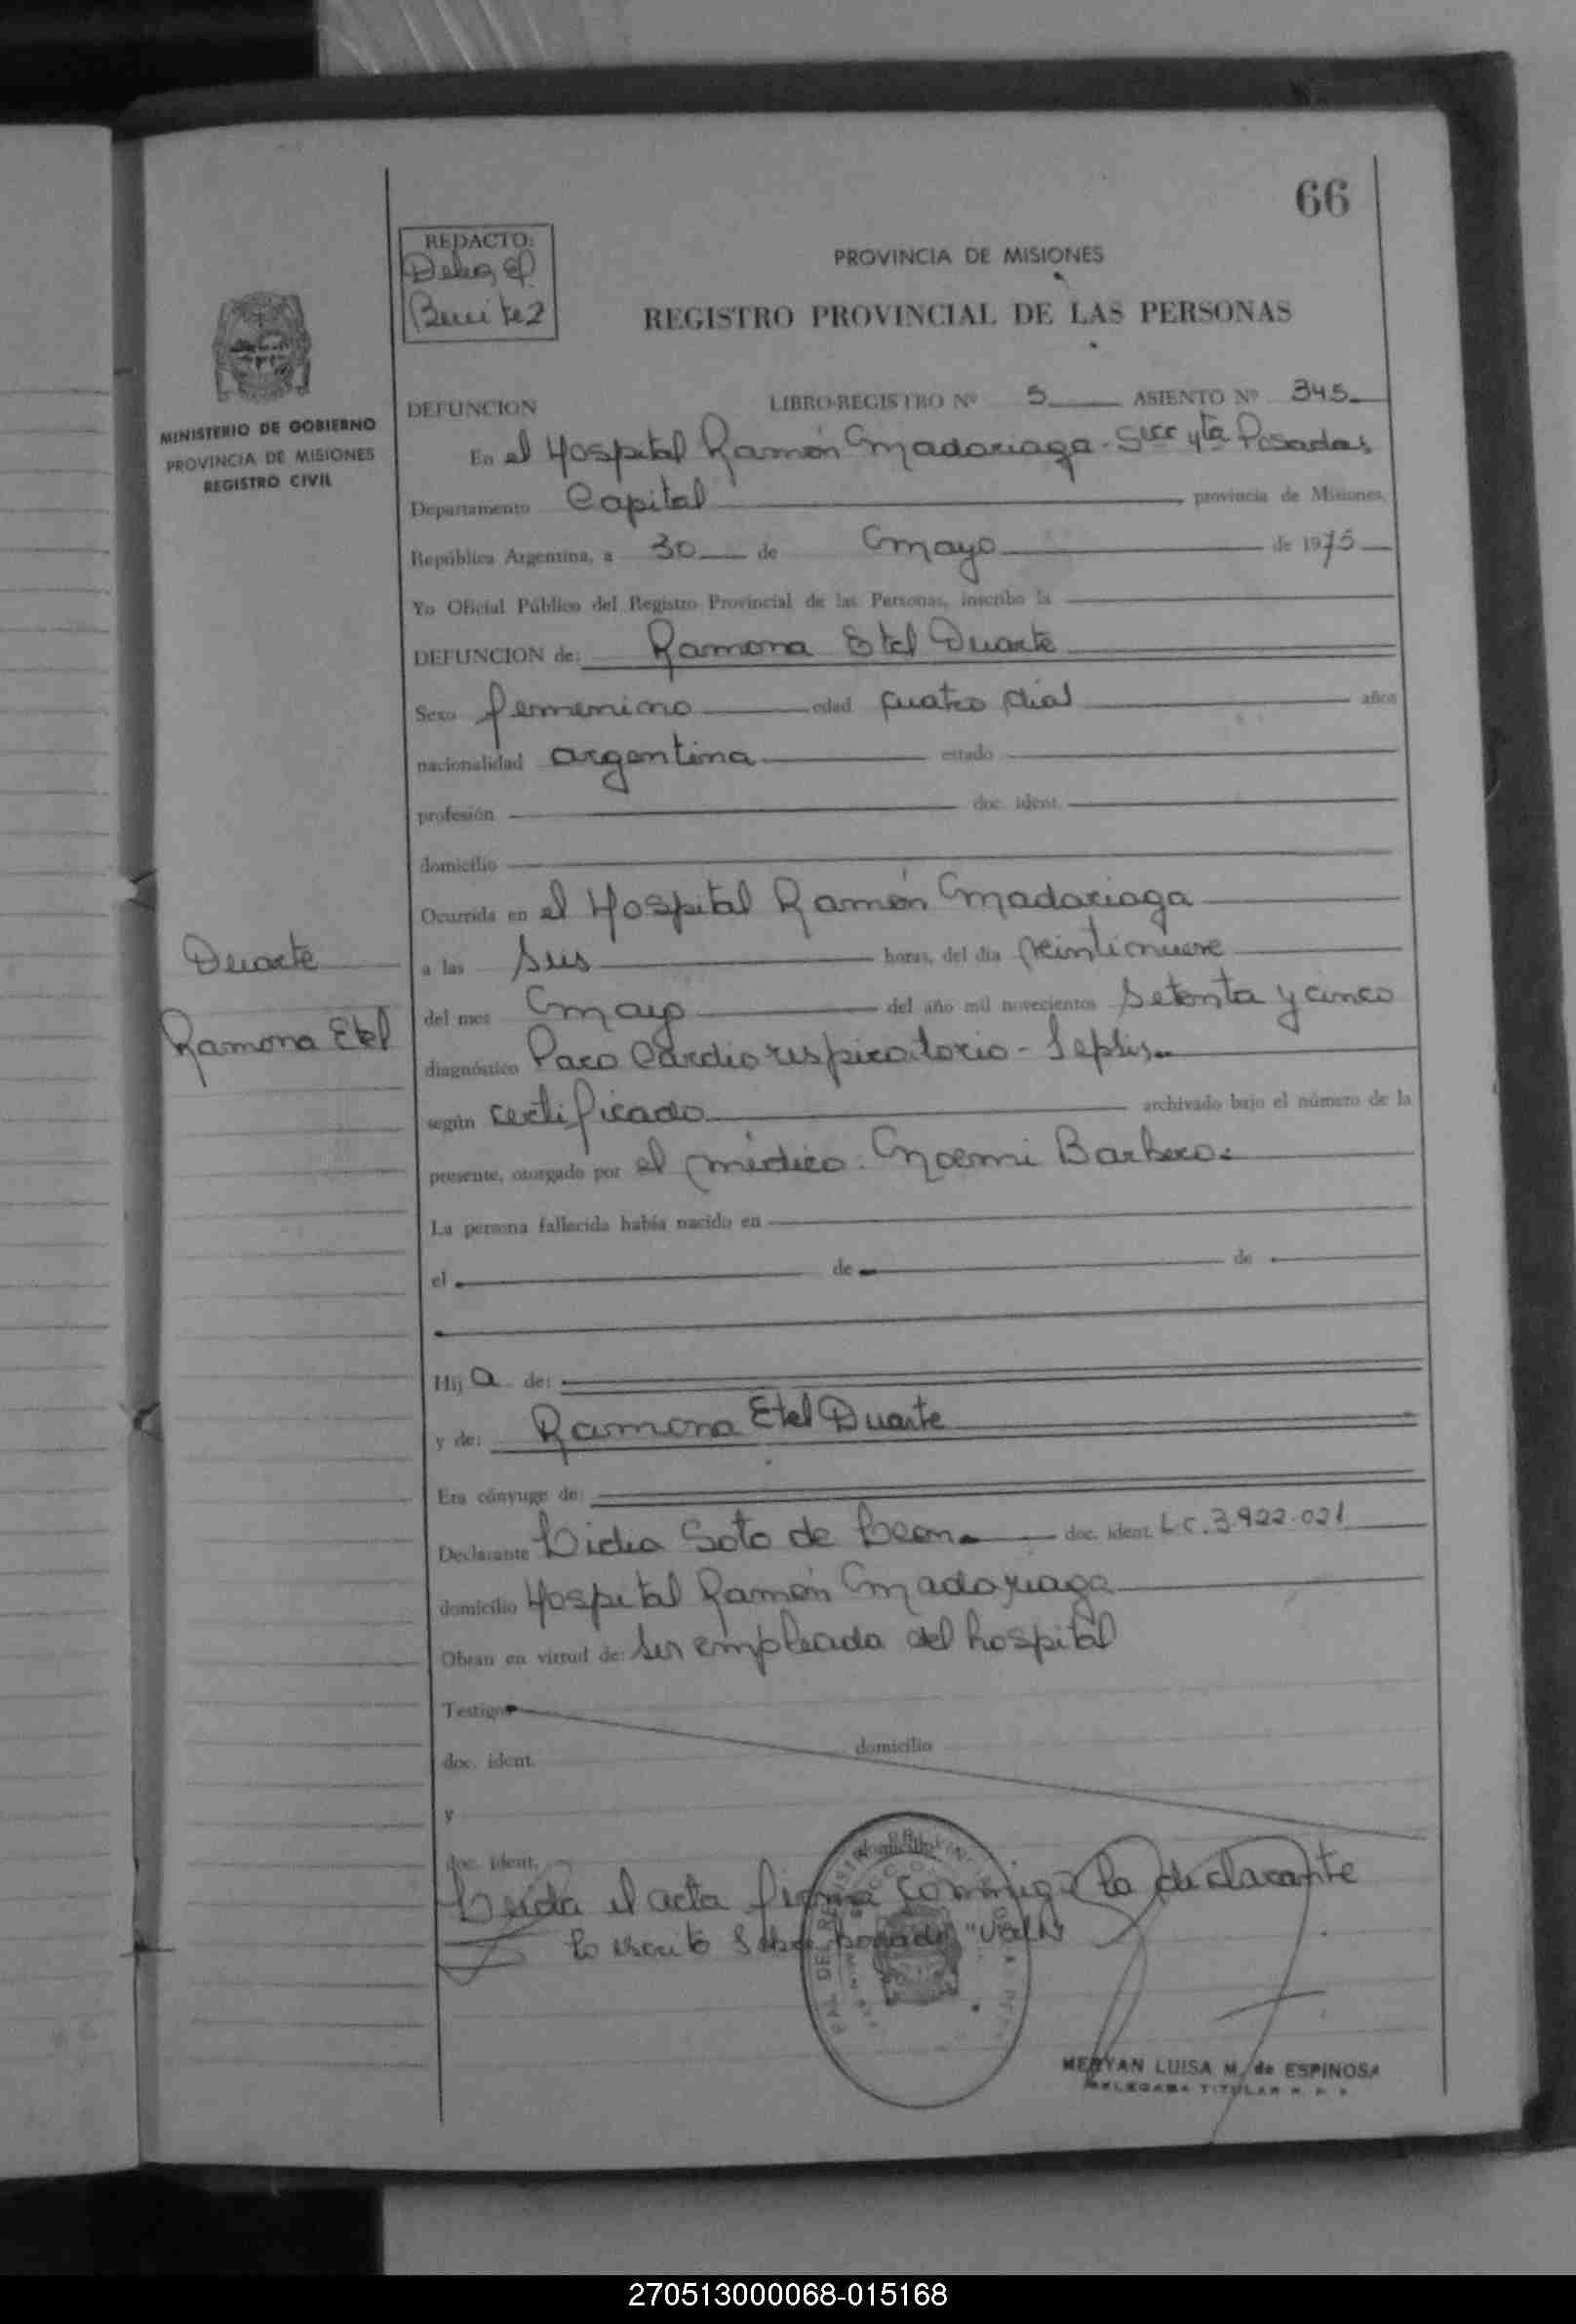 66
REDACTO:
Benitez
PROVINCIA DE MISIONES
REGISTRO PROVINCIAL DE LAS PERSONAS
MINISTERIO DE GOBIERNO
PROVINCIA DE MISIONES
REGISTRO CIVIL
DEFUNCION LIBRO-REGISTRO Nº 5 ASIENTO Nº 345
En el Hospital Ramón Madariaga - Secc 4ta Posadas
Departamento Capital provincia de Misiones,
República Argentina, a 30 de Mayo de 1975
Yo Oficial Público del Registro Provincial de las Personas, inscribo la
DEFUNCION de: Ramona Etel Duarte
Sexo femenino edad cuatro dias años
nacionalidad argentina estado
profesión doc. ident.
domicilio
Ocurrida en el Hospital Ramón Madariaga
Duarte
Ramona Etel
a las seis horas, del día veintinueve
del mes Mayo del año mil novecientos setenta y cinco
diagnóstico Paro Cardiorespiratorio - Sepsis
según certificado archivado bajo el número de la
presente, otorgado por el médico. Noemi Barbero.
La persona fallecida había nacido en
el de de
Hija de:
y de: Ramona Etel Duarte
Era cónyuge de:
Declarante Lidia Soto de Leon doc. ident. L.C. 3.922.021
domicilio Hospital Ramón Madariaga
Obran en virtud de: ser empleada del hospital
Testigos
doc. ident. domicilio
y
doc. ident. domicilio
Leida el acta firma conmigo la declarante
lo escrito sobre borrado "Vale"
MERYAN LUISA M. de ESPINOSA
DELEGADA TITULAR R. P. P.
270513000068-015168